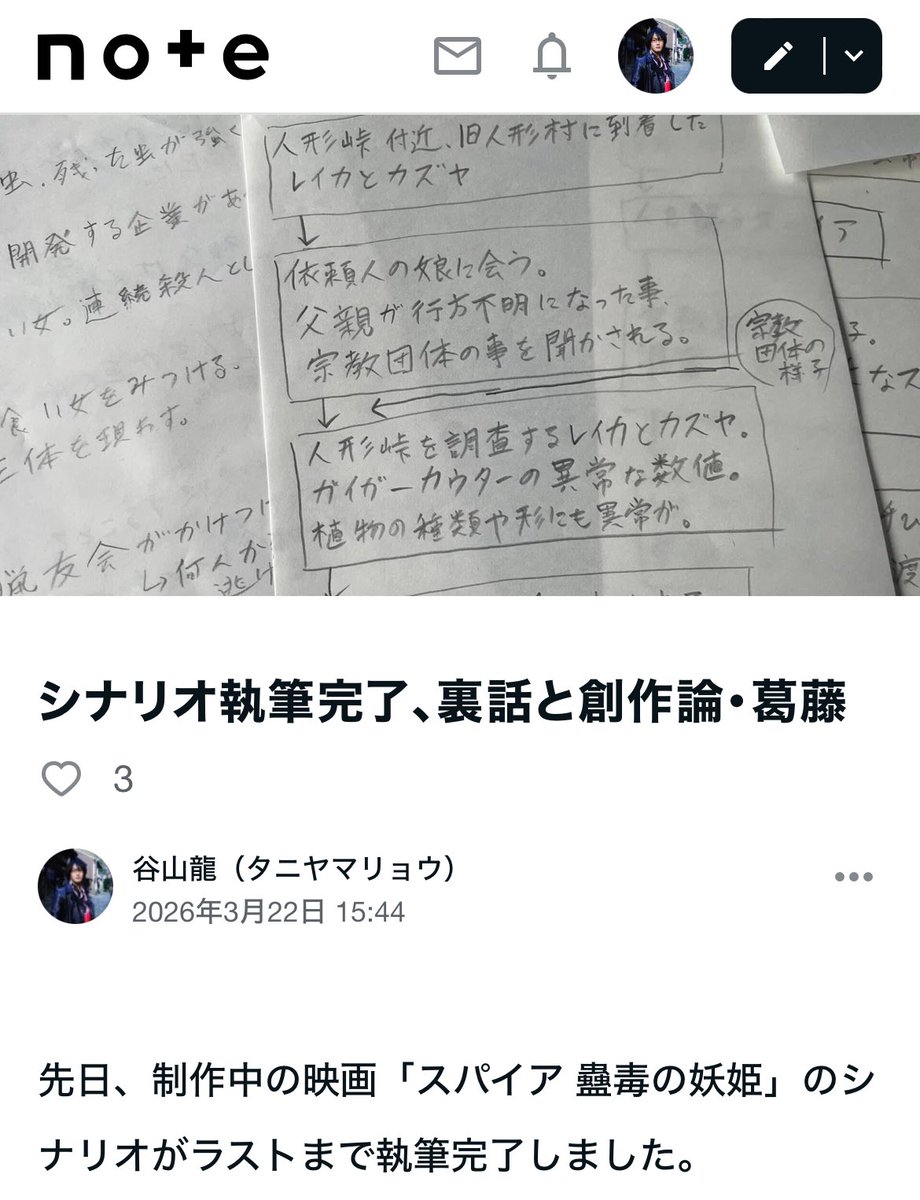 note
虫、残った虫が強く
開発する企業があ
い女。連続殺人とし
食い女をみつける。
三体を現わす。
猟友会がかけつけ
↳何人か
逃げ
人形峠 付近、旧人形村に到着した
レイカとカズヤ
↓
依頼人の娘に会う。
父親が行方不明になった事、
宗教団体の事を聞かされる。
宗教
団体の
様子
↓
人形峠を調査するレイカとカズヤ。
ガイガーカウターの異常な数値。
植物の種類や形にも異常が。
ア
子。
なス
度
シナリオ執筆完了、裏話と創作論・葛藤
3
谷山龍（タニヤマリョウ）
2026年3月22日 15:44
先日、制作中の映画「スパイア 蠱毒の妖姫」のシ
ナリオがラストまで執筆完了しました。